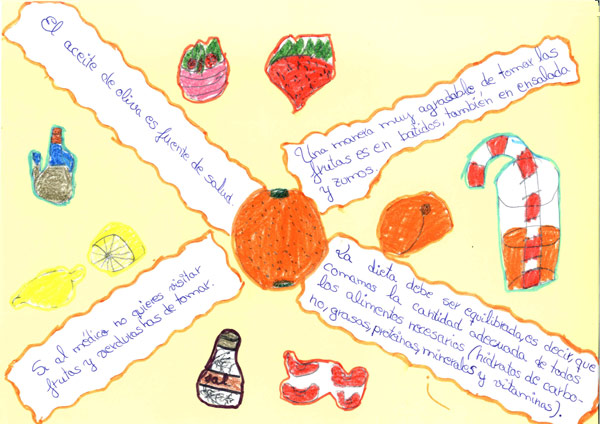 El aceite de oliva es fuente de salud.
Una manera muy agradable, de tomar las
frutas es en batidos, también en ensalada
y zumos.
Si al médico no quieres visitar
frutas y verduras has de tomar.
La dieta debe ser equilibrada, es decir, que
comamos la cantidad adecuada de todos
los alimentos necesarios (hidratos de carbo-
no, grasas, proteinas, minerales y vitaminas).
sal